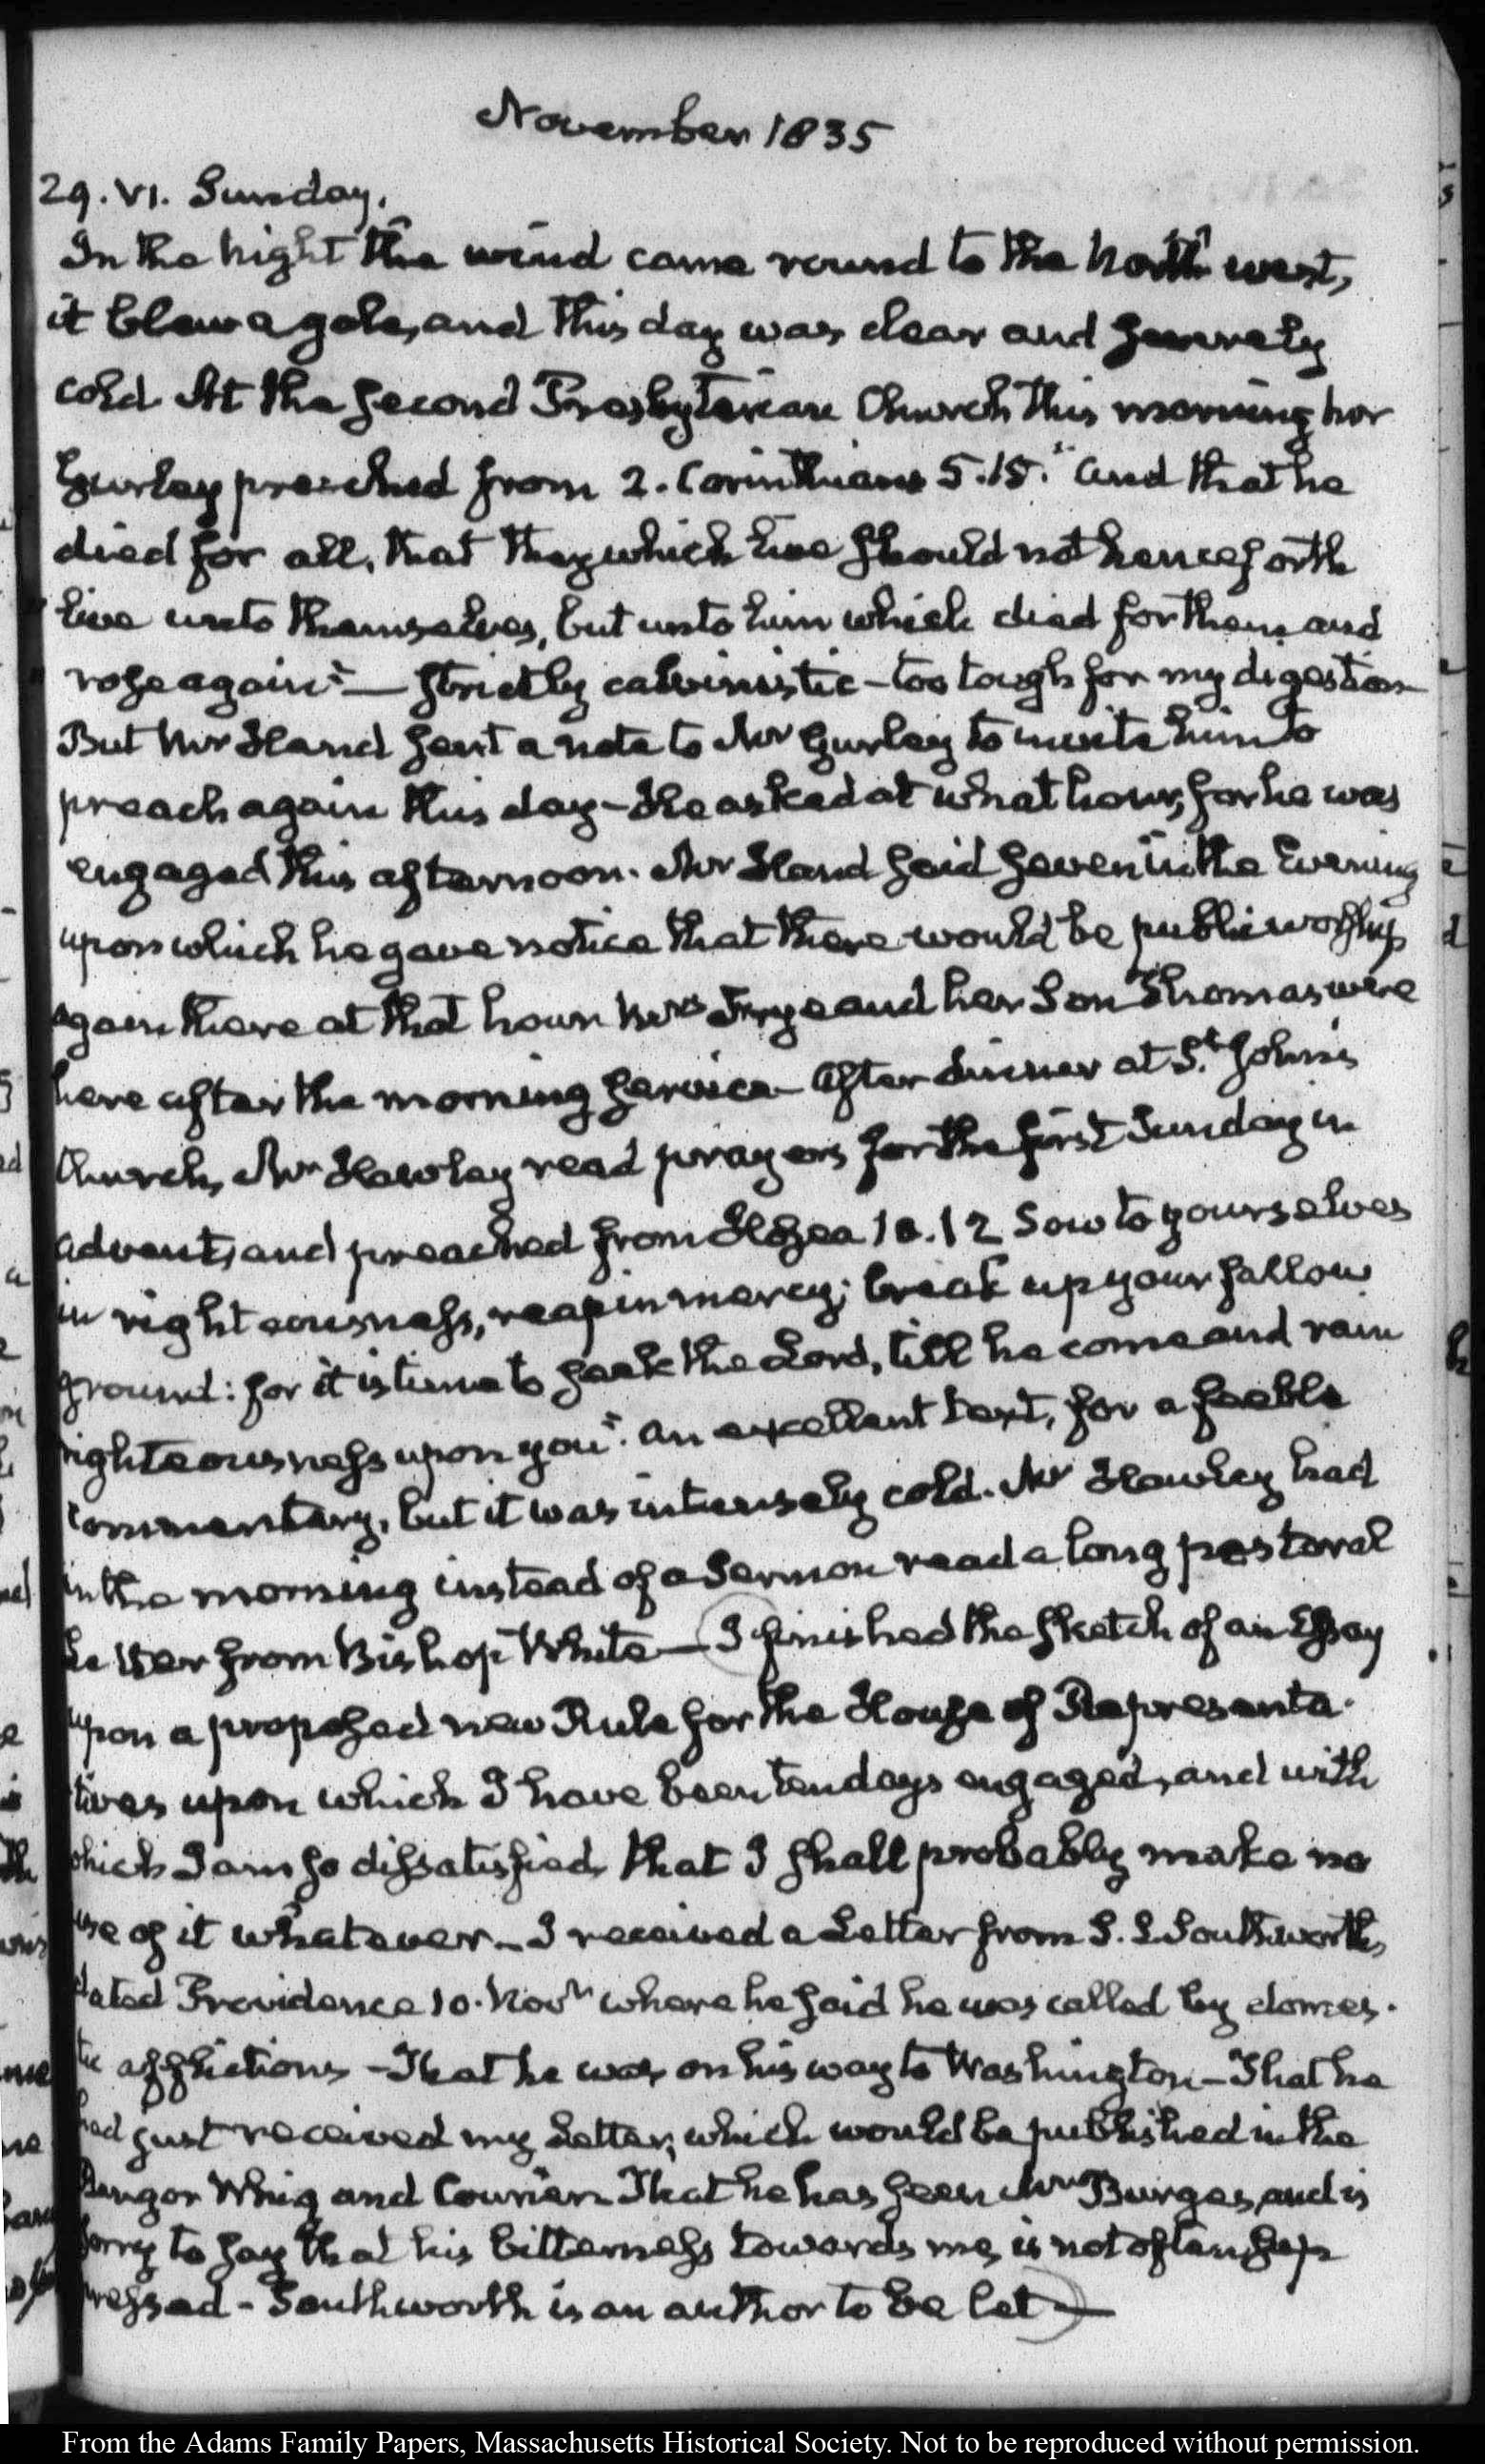 November 1835
29. VI. Sunday.
In the night the wind came round to the North west,
it blew a gale, and this day was clear and severely
cold. At the second Presbyterian Church this morning Mr
Gurley preached from 2. Corinthians 5.15. "and that he
died for all, that they which live should not henceforth
" live unto themselves, but unto him which died for them and
" rose again" — strictly calvinistic – too tough for my digestion
But Mr Hand sent a note to Mr Gurley to invite him to
preach again this day – He asked at what hour, for he was
engaged this afternoon. Mr Hand said seven in the Evening
upon which he gave notice that there would be public worship
again there at that hour Mrs Frye and her Son Thomas were
here after the morning service – After dinner at St. John's
Church, Mr Hawley read prayers for the first Sunday in
advent, and preached from Hosea 10.12 Sow to yourselves
in righteousness, reap in mercy; break up your fallow
ground: for it is time to seek the Lord, till he come and rain
righteousness upon you". An excellent text, for a feeble
commentary, but it was intensely cold. Mr Hawley had
in the morning instead of a Sermon read a long pastoral
Letter from Bishop White — I finished the sketch of an Essay
upon a proposed new Rule for the House of Representa-
tives upon which I have been ten days engaged, and with
which I am so dissatisfied, that I shall probably make no
use of it whatever – I received a Letter from S. L Southworth,
dated Providence 10. Novr where he said he was called by domes-
tic afflictions – That he was on his way to Washington – That he
had just received my Letter, which would be published in the
Bangor Whig and Courier. That he has seen Mr Burges, and is
sorry to say that his bitterness towards me, is not often sup
pressed – Southworth is an author to be let —
From the Adams Family Papers, Massachusetts Historical Society. Not to be reproduced without permission.